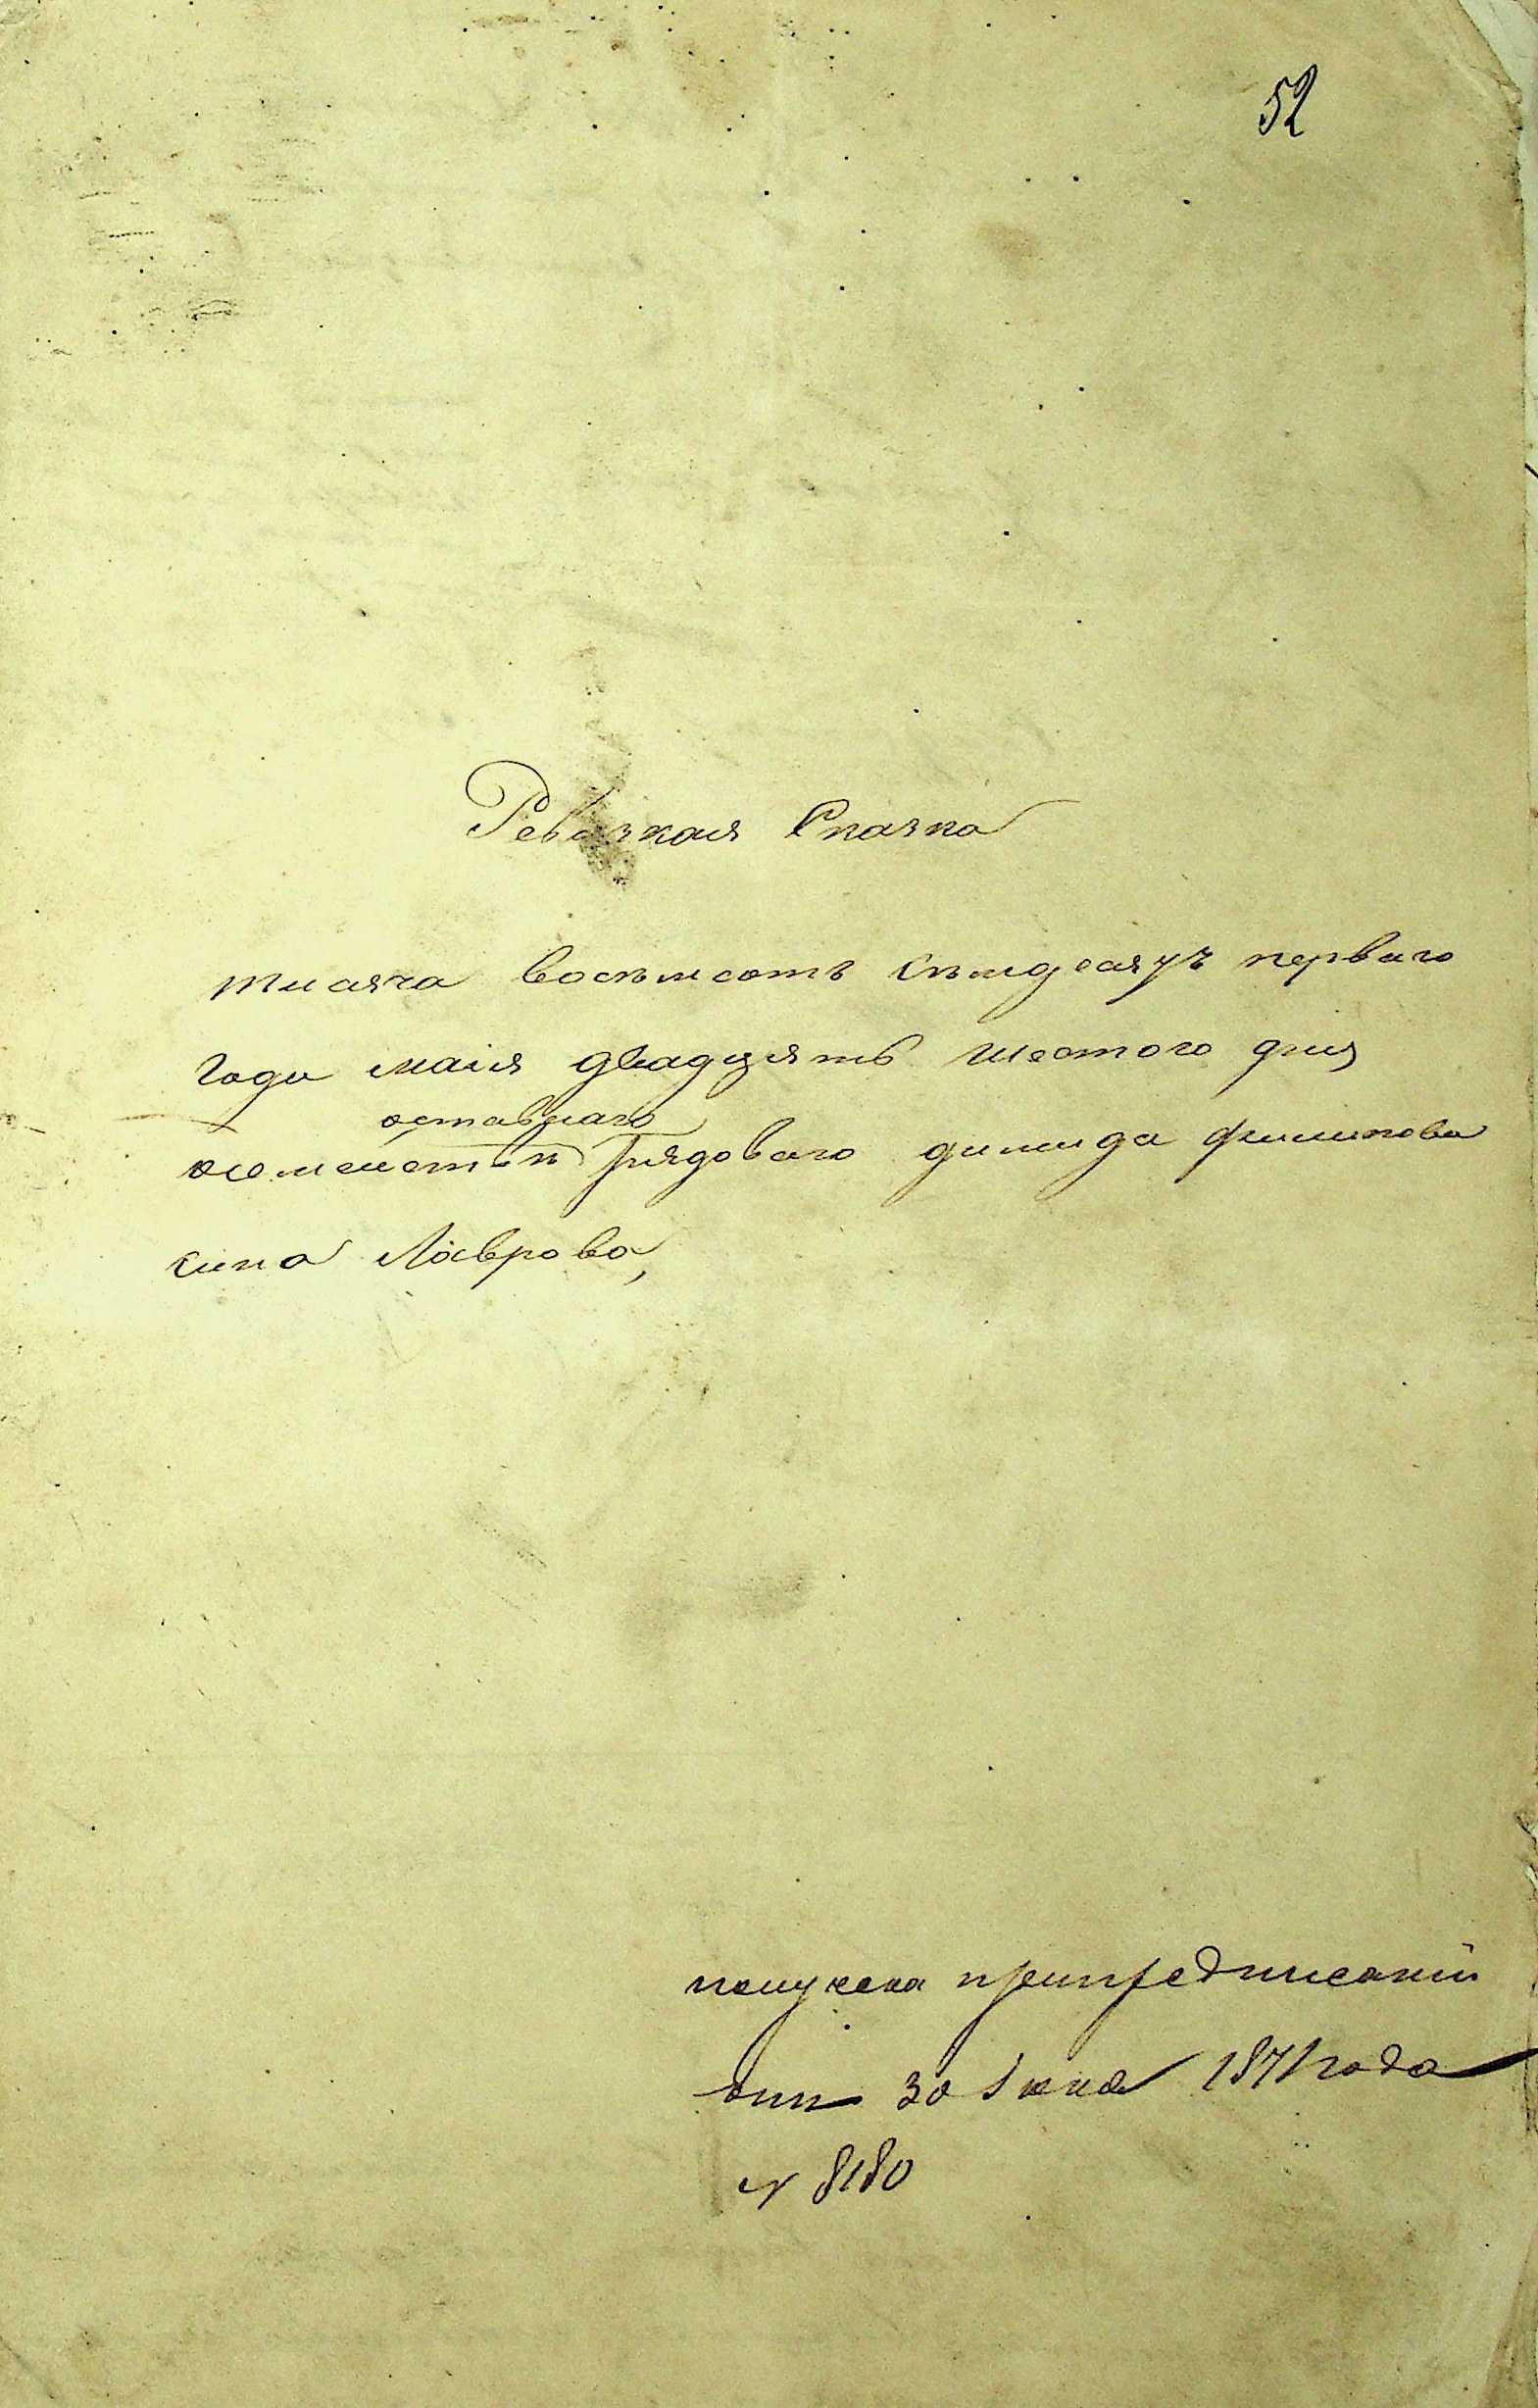 52
Ревизкая Сказка
тисяча восемсотъ семдесяцъ перваго
года маія двадцять шестого дня
оставнаго
рядоваго димида филипова
сина Лаврова,
получена припредписаніи
отъ 30 Іюня 1871 года
№ 8180